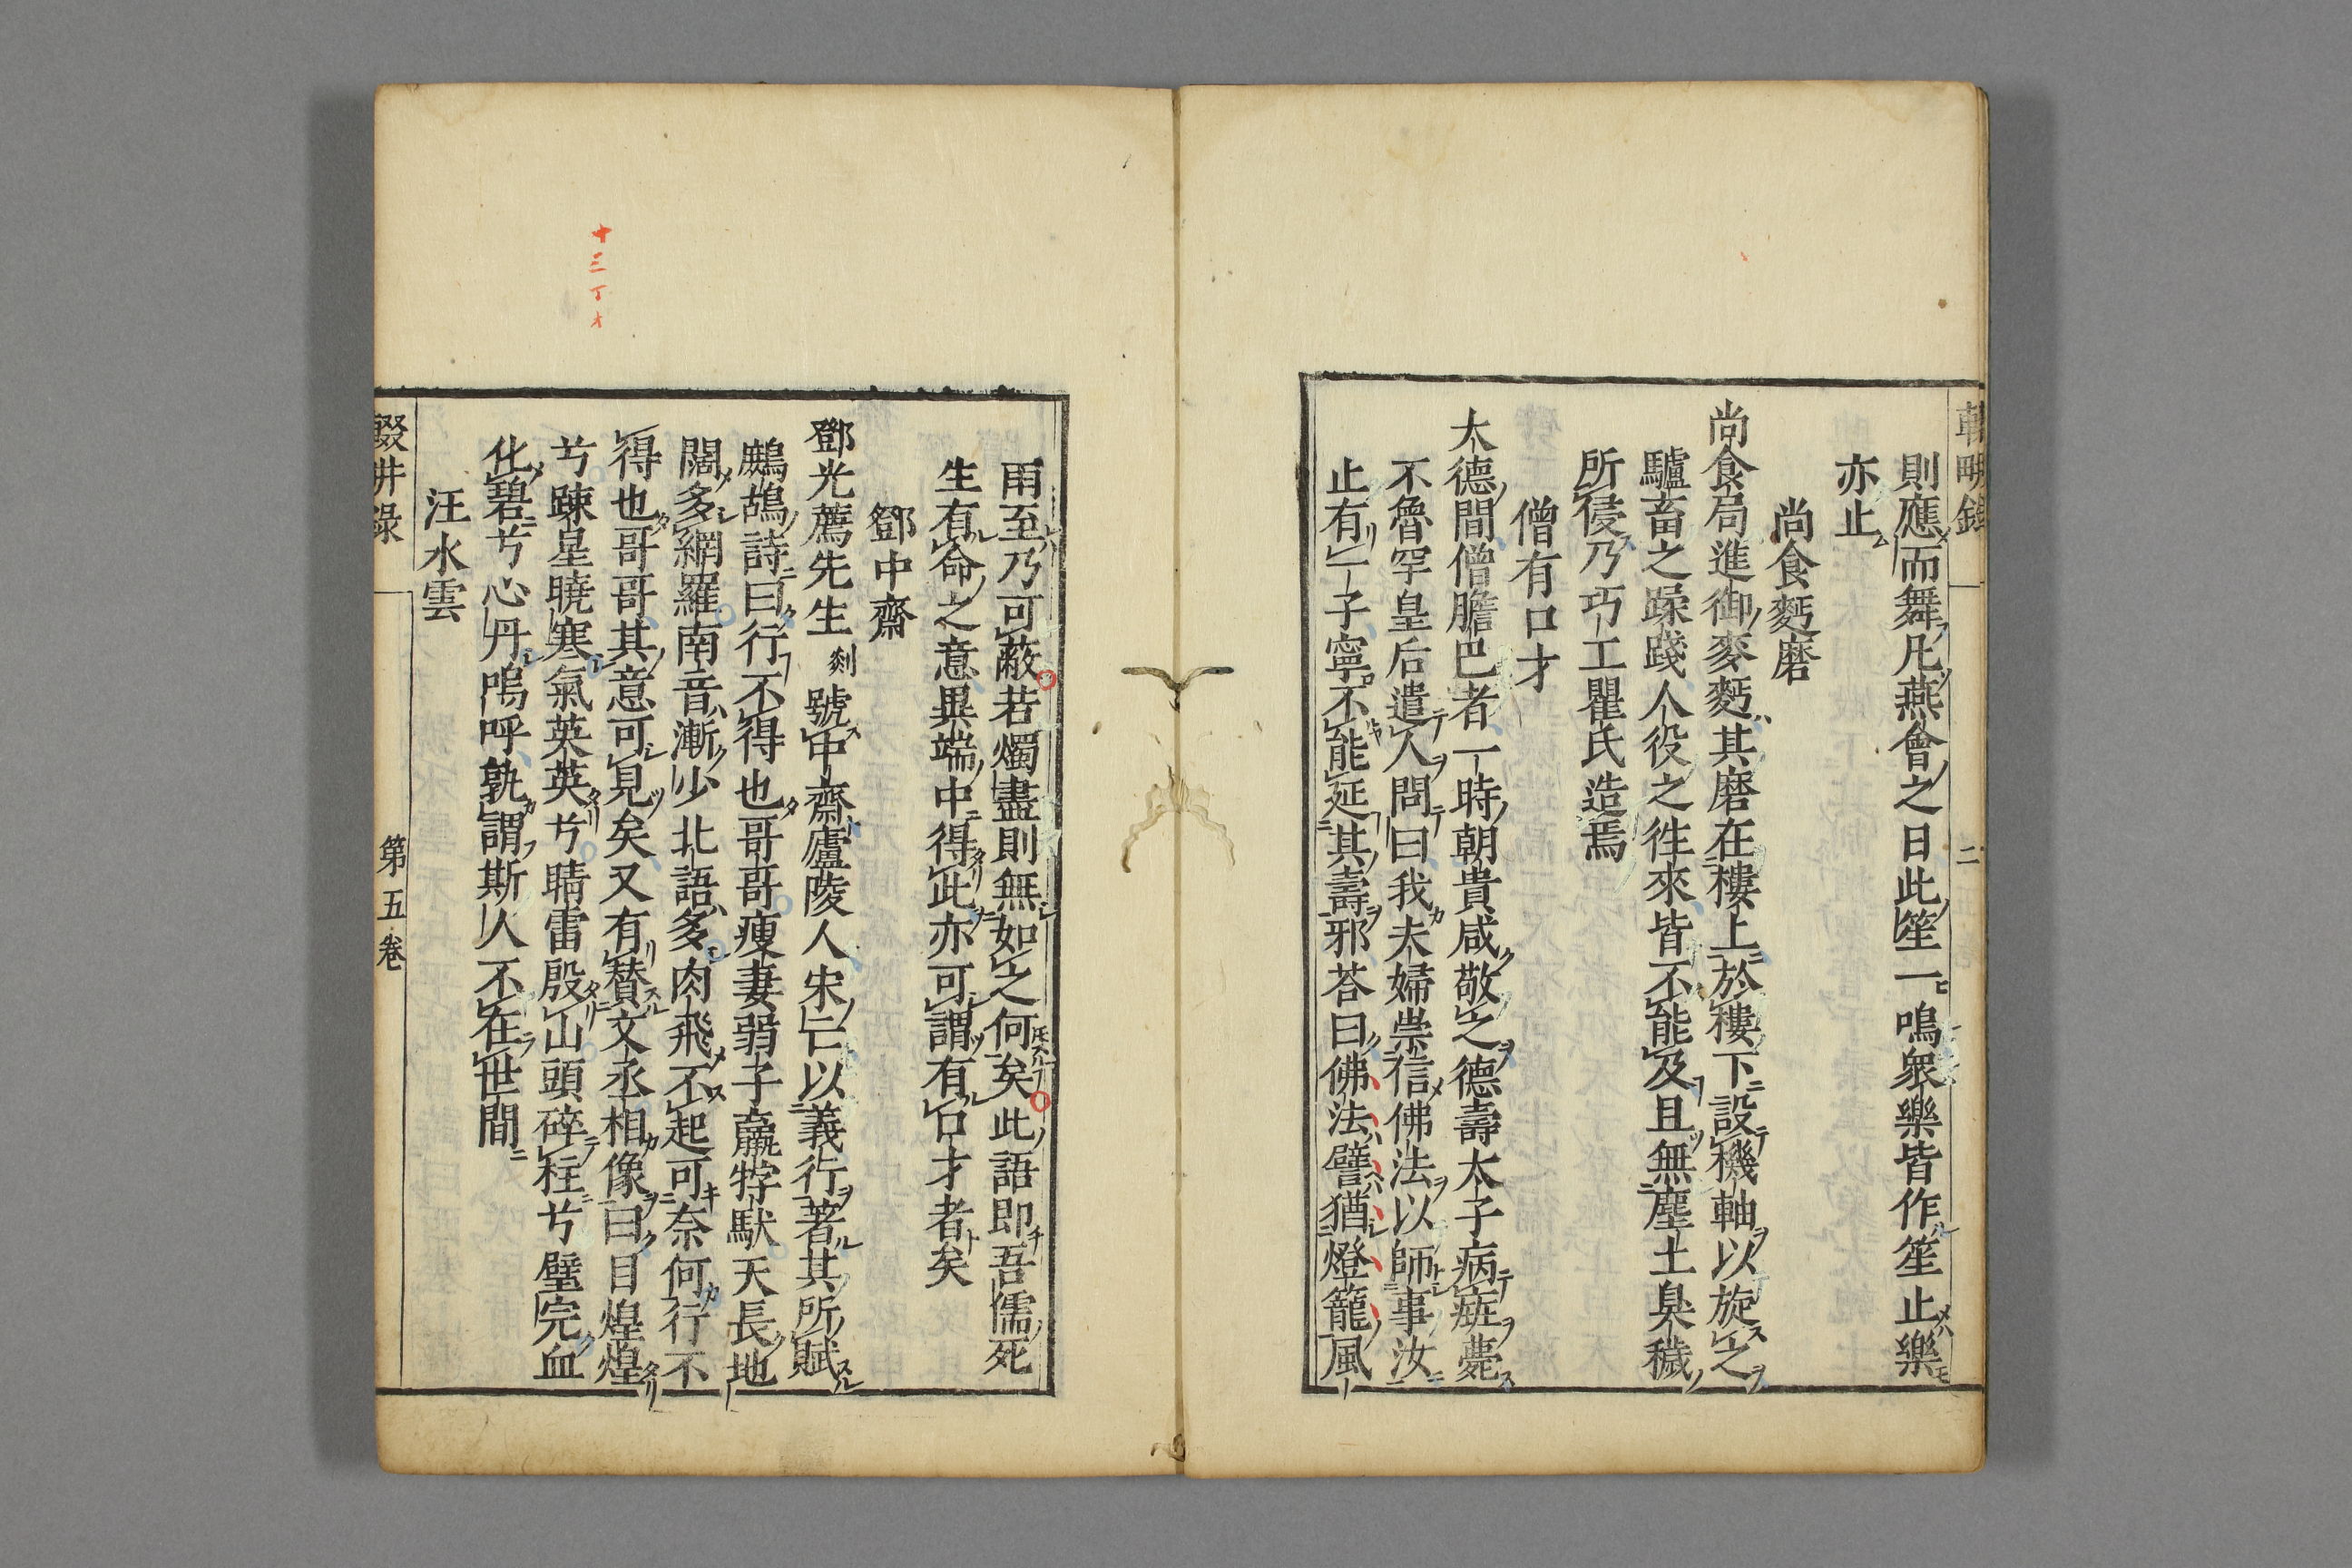 則應而舞凡燕會之日此笙一鳴衆樂皆作笙止樂
亦止
尚食麪磨
尚食局進御麥麪其磨在樓上於樓下設機軸以旋之
驢畜之蹂踐人役之徃來皆不能及且無塵土臭穢
所侵乃巧工瞿氏造焉
僧有口才
大德間僧膽巴者一時朝貴咸敬之德壽太子病㾮薨
不魯罕皇后遣人問曰我夫婦崇信佛法以師事汝
止有一子寧不能延其壽邪荅曰佛法譬猶燈籠風
雨至乃可蔽若燭盡則無如之何矣此語即吾儒死
生有命之意異端中得此亦可謂有口才者矣
鄧中齋
鄧光薦先生剡號中齋廬陵人宋亡以義行著其所賦
鷓鴣詩曰行不得也哥哥瘦妻弱子羸牸馱天長地
闊多網羅南音漸少北語多肉飛不起可奈何行不
得也哥哥其意可見矣又有賛文丞相像曰目煌煌
兮踈星曉寒氣英英兮晴雷殷山頭碎柱兮璧完血
化碧兮心丹嗚呼孰謂斯人不在世間
汪水雲
輟畊錄
第五卷
二
十三丁オ